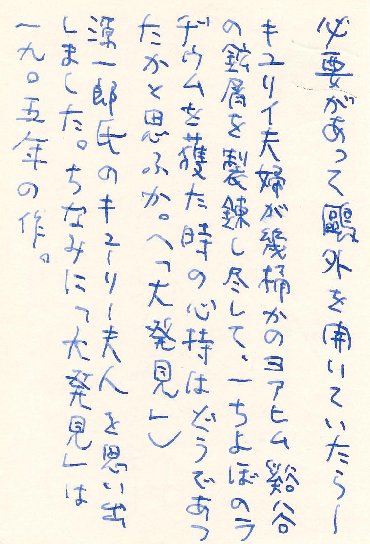 必要があって鷗外を開いていたら―
キユリイ夫婦が幾桶かのヨアヒム谿谷
の鉱屑を製錬し尽して、一ちよぼのラ
ヂウムを獲た時の心持はどうであつ
たかと思ふか。(「大発見」)
源一郎氏のキューリー夫人を思い出
しました。ちなみに「大発見」は
一九〇五年の作。